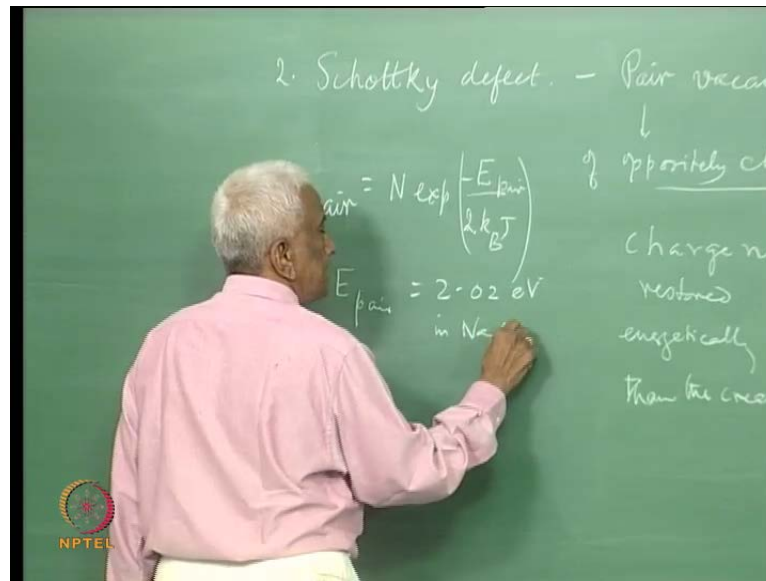 2. Schottky defect. - Pair
of oppositely
air = N exp(-E pair / 2k_B T)
E pair = 2.02 eV
in Na
Charge
restored
energetically
than the
NPTEL